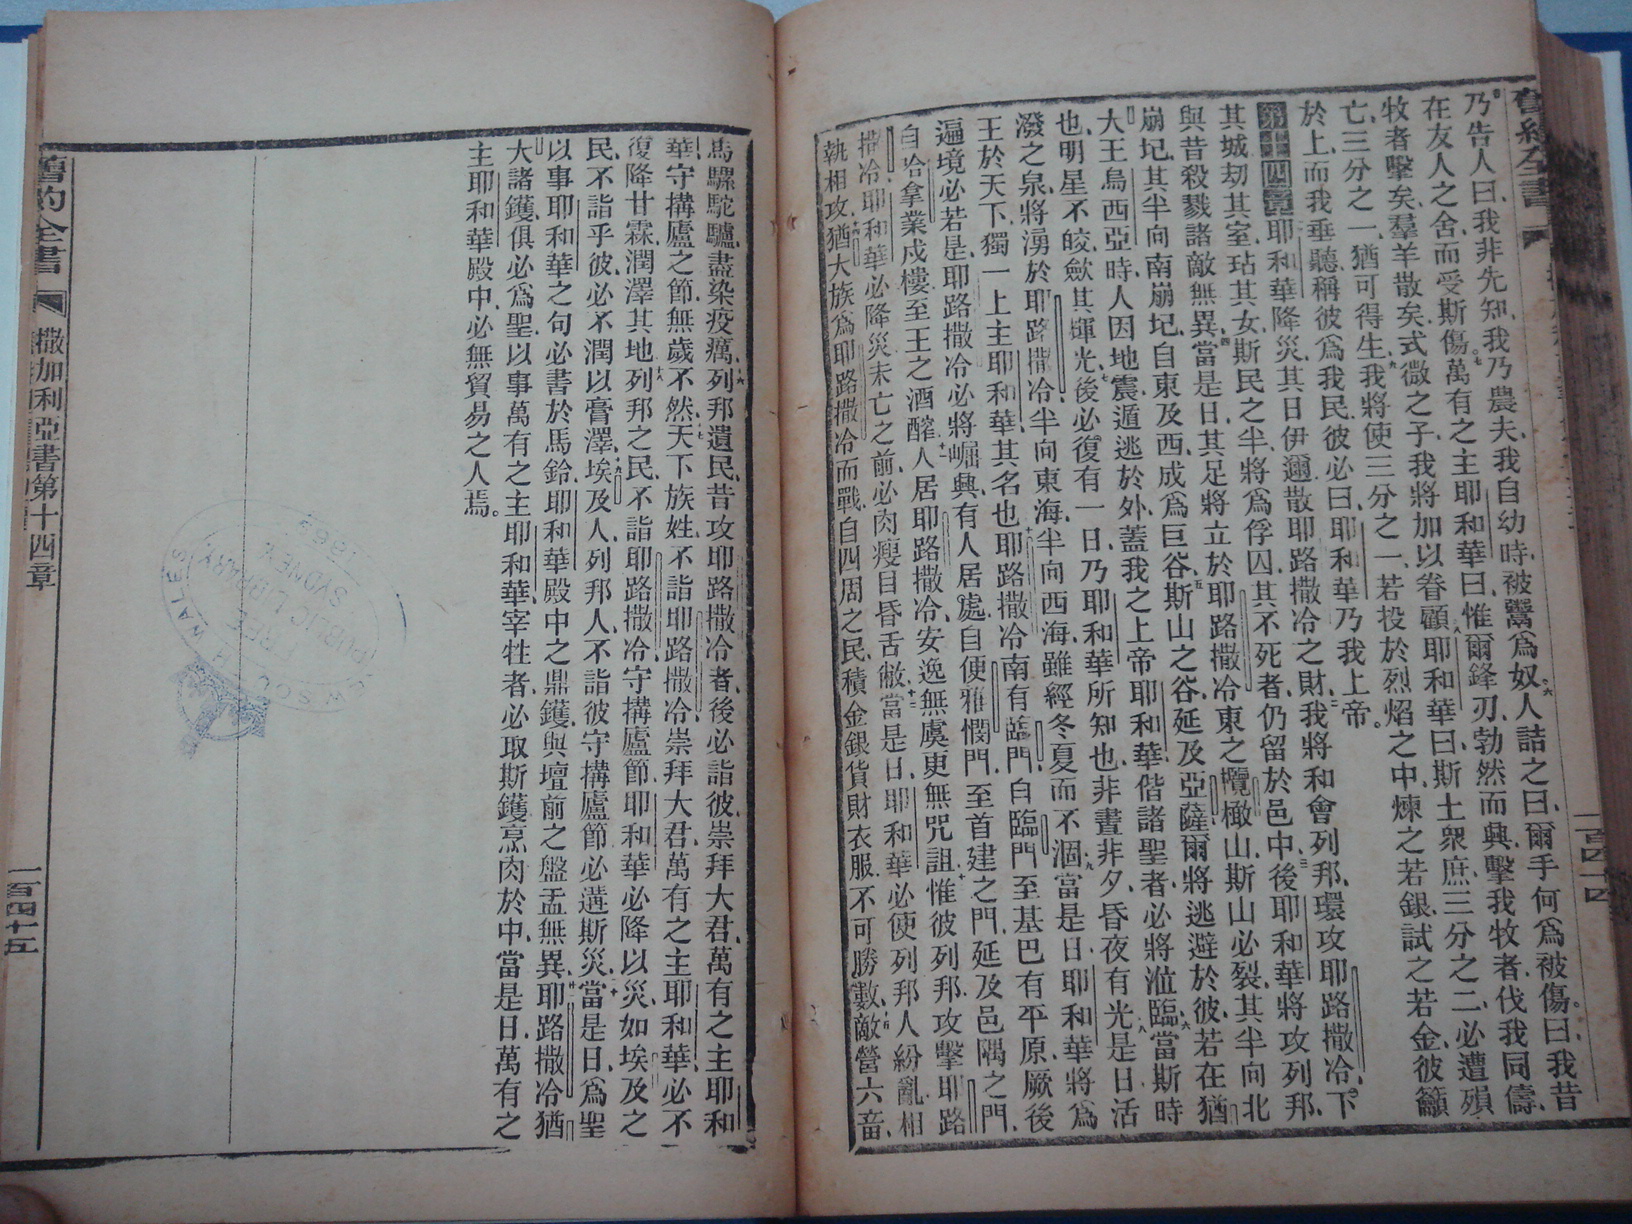 乃告人曰、我非先知、我乃農夫、我自幼時、被鬻爲奴、六人詰之曰、爾手何爲被傷、曰、我昔
在友人之舍、而受斯傷、七萬有之主耶和華曰、惟爾鋒刃、勃然而興、擊我牧者、伐我同儔、
牧者擊矣、羣羊散矣、式微之子、我將加以眷顧、八耶和華曰、斯土衆庶、三分之二、必遭殞
亡、三分之一、猶可得生、九我將使三分之一、若投於烈焰之中、煉之若銀、試之若金、彼籲
於上、而我垂聽、稱彼爲我民、彼必曰、耶和華乃我上帝。
第十四章 耶和華降災、其日伊邇、散耶路撒冷之財、二我將和會列邦、環攻耶路撒冷、下
其城、刧其室、玷其女、斯民之半、將爲俘囚、其不死者、仍留於邑中、三後耶和華將攻列邦、
與昔殺戮諸敵無異、四當是日、其足將立於耶路撒冷東之欖橄山、斯山必裂、其半向北
崩圮、其半向南崩圮、自東及西、成爲巨谷、五斯山之谷、延及亞薩、爾將逃避於彼、若在猶
大王烏西亞時、人因地震遁逃於外、蓋我之上帝耶和華、偕諸聖者、必將涖臨、六當斯時
也、明星不皎、歛其輝光、七後必復有一日、乃耶和華所知也、非晝非夕、昏夜有光、八是日活
潑之泉、將湧於耶路撒冷、半向東海、半向西海、雖經冬夏而不涸、九當是日耶和華將爲
王於天下、獨一上主耶和華其名也、十耶路撒冷南有臨門、自臨門至基巴有平原、厥後
遍境必若是、耶路撒冷必將崛興、有人居處、自便雅憫門、至首建之門、延及邑隅之門、
自哈拿業戍樓、至王之酒醡、十一人居耶路撒冷、安逸無虞、更無咒詛、十二惟彼列邦攻擊耶路
撒冷、耶和華必降災、未亡之前、必肉瘦目昏舌敝、十三當是日、耶和華必使列邦人紛亂相
執相攻、十四猶大族爲耶路撒冷而戰、自四周之民、積金銀貨財衣服、不可勝數、十五敵營六畜、
一百四十四
馬騾駝驢、盡染疫癘、十六列邦遺民、昔攻耶路撒冷者、後必詣彼、崇拜大君、萬有之主耶和
華、守搆廬之節、無歲不然、十七天下族姓、不詣耶路撒冷、崇拜大君、萬有之主耶和華、必不
復降甘霖、潤澤其地、十八列邦之民、不詣耶路撒冷、守搆廬節、耶和華必降以災、如埃及之
民、不詣乎彼、必不潤以膏澤、十九埃及人、列邦人、不詣彼守搆廬節、必遘斯災、二十當是日、爲聖
以事耶和華之句、必書於馬鈴、耶和華殿中之鼎鑊、與壇前之盤盂無異、耶路撒冷猶
大諸鑊、俱必爲聖、以事萬有之主耶和華、宰牲者、必取斯鑊、烹肉於中、當是日、萬有之
主耶和華殿中、必無貿易之人焉。
舊約全書 撒加利亞書第十四章 一百四十五
FREE
PUBLIC LIBRARY
SYDNEY
NEW SOUTH WALES